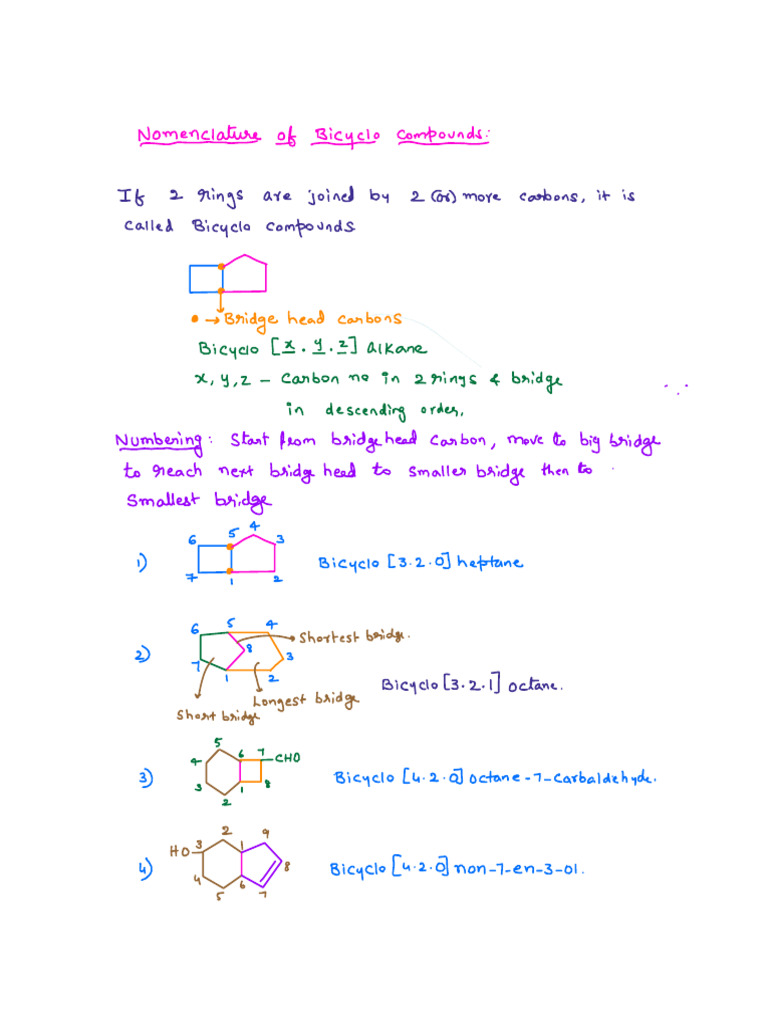 Nomenclature of Bicyclo compounds:
If 2 rings are joined by 2 (or) more carbons, it is
called Bicyclo compounds
• → Bridge head carbons
Bicyclo [x . y . z] alkane
x, y, z - Carbon no in 2 rings & bridge
in descending order,
Numbering: Start from bridgehead carbon, move to big bridge
to reach next bridge head to smaller bridge then to
Smallest bridge
6 5 4 3
1) Bicyclo [3.2.0] heptane
7 1 2
6 5 4
8 → Shortest bridge.
2) 3
7 1 2
Bicyclo [3.2.1] octane.
Longest bridge
Short bridge
5
4 6 7 -CHO
3) 3 1 8 Bicyclo [4.2.0] octane-7-Carbaldehyde.
2
2 9
HO 3 1
4) 4 6 8 Bicyclo [4.2.0] non-7-en-3-ol.
5 7